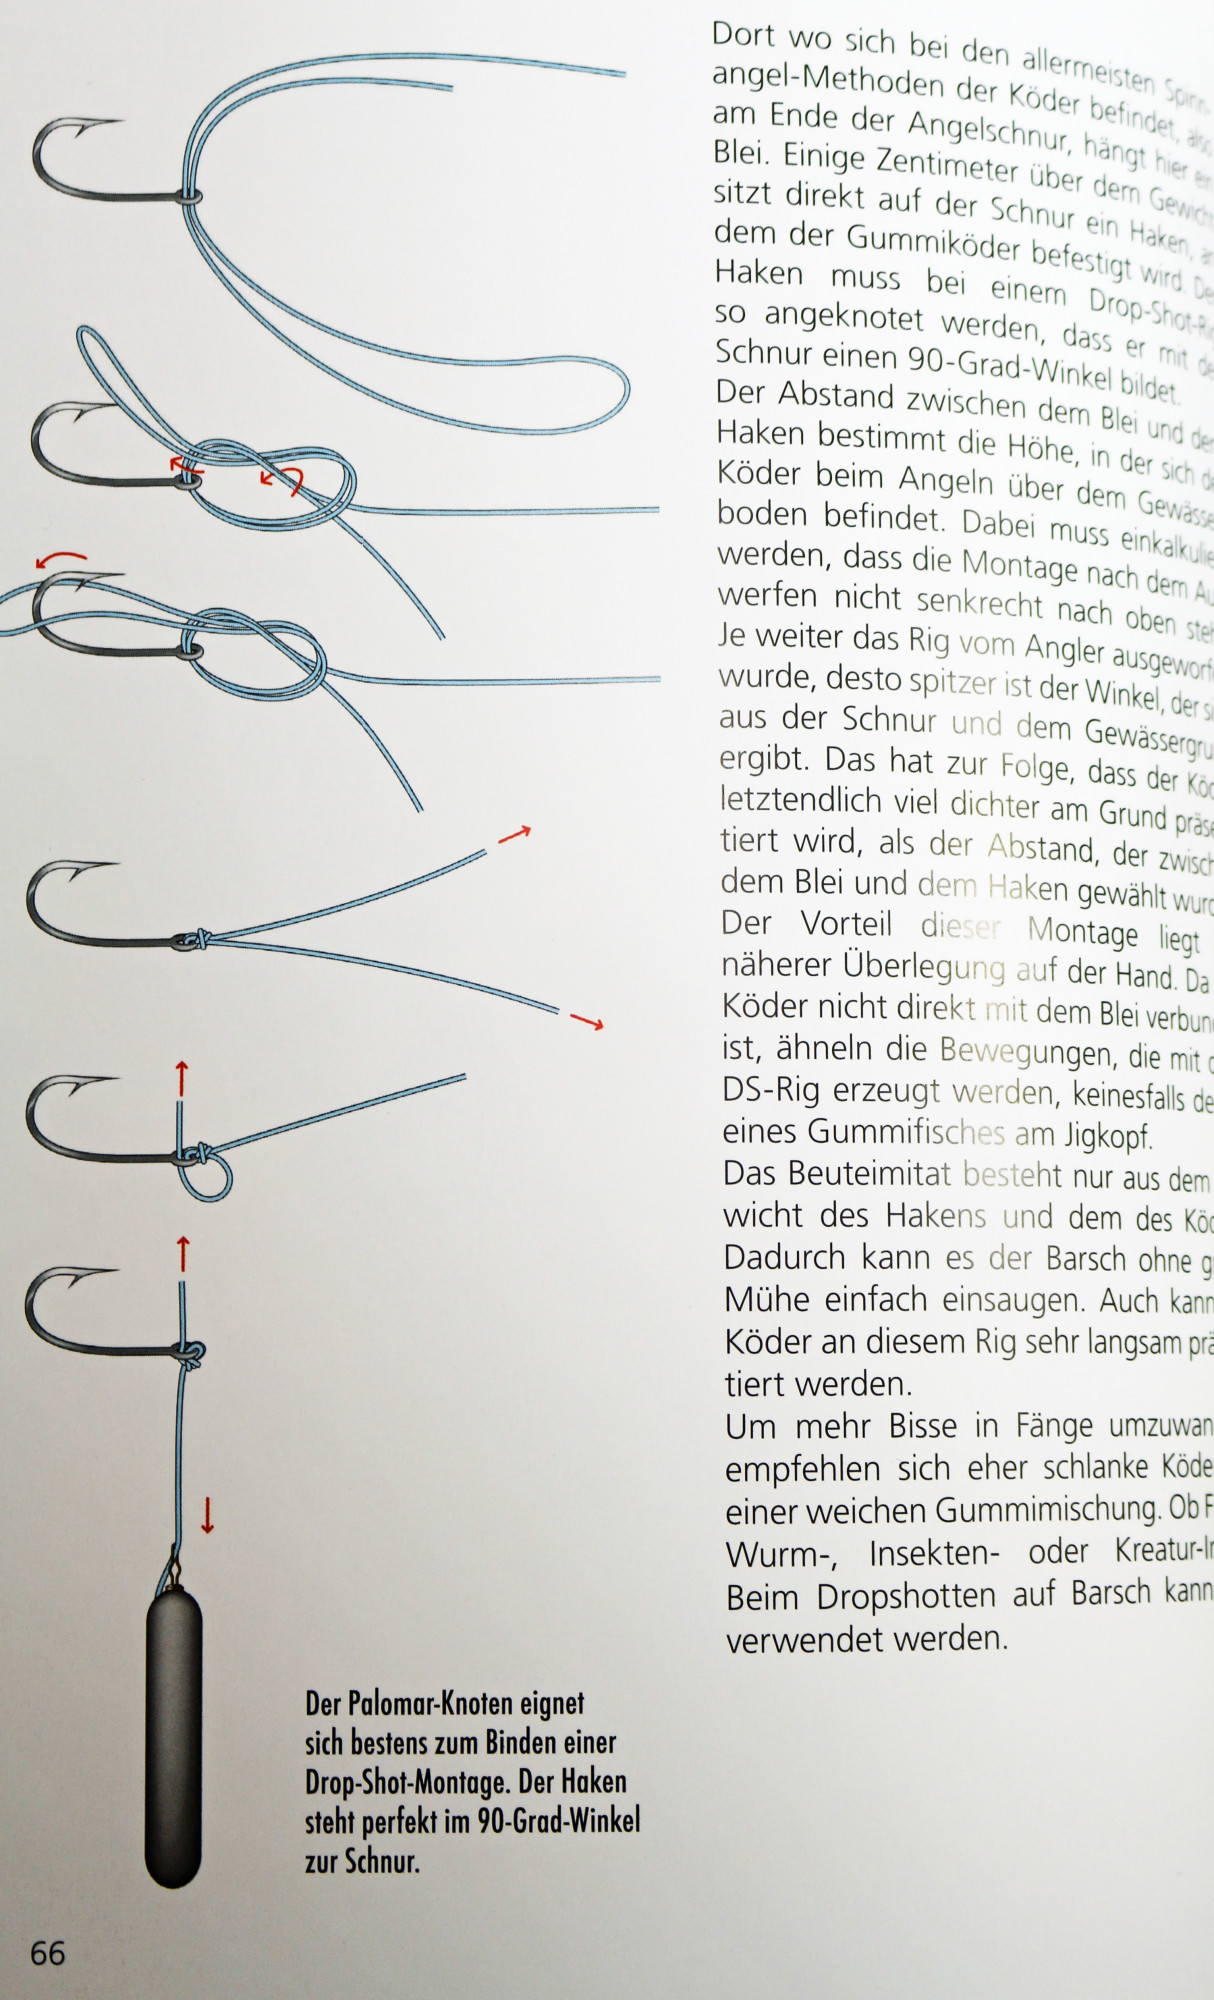 Dort wo sich bei den allermeisten Spinn-
angel-Methoden der Köder befindet, also
am Ende der Angelschnur, hängt hier ein
Blei. Einige Zentimeter über dem Gewicht
sitzt direkt auf der Schnur ein Haken, an
dem der Gummiköder befestigt wird. Der
Haken muss bei einem Drop-Shot-Rig
so angeknotet werden, dass er mit der
Schnur einen 90-Grad-Winkel bildet.
Der Abstand zwischen dem Blei und dem
Haken bestimmt die Höhe, in der sich der
Köder beim Angeln über dem Gewässer
boden befindet. Dabei muss einkalkulie
werden, dass die Montage nach dem Au
werfen nicht senkrecht nach oben steh
Je weiter das Rig vom Angler ausgeworfe
wurde, desto spitzer ist der Winkel, der si
aus der Schnur und dem Gewässergru
ergibt. Das hat zur Folge, dass der Köd
letztendlich viel dichter am Grund präse
tiert wird, als der Abstand, der zwisch
dem Blei und dem Haken gewählt wurd
Der Vorteil dieser Montage liegt
näherer Überlegung auf der Hand. Da
Köder nicht direkt mit dem Blei verbun
ist, ähneln die Bewegungen, die mit d
DS-Rig erzeugt werden, keinesfalls de
eines Gummifisches am Jigkopf.
Das Beuteimitat besteht nur aus dem
wicht des Hakens und dem des Köd
Dadurch kann es der Barsch ohne g
Mühe einfach einsaugen. Auch kann
Köder an diesem Rig sehr langsam prä
tiert werden.
Um mehr Bisse in Fänge umzuwan
empfehlen sich eher schlanke Köde
einer weichen Gummimischung. Ob F
Wurm-, Insekten- oder Kreatur-I
Beim Dropshotten auf Barsch kann
verwendet werden.
Der Palomar-Knoten eignet
sich bestens zum Binden einer
Drop-Shot-Montage. Der Haken
steht perfekt im 90-Grad-Winkel
zur Schnur.
66